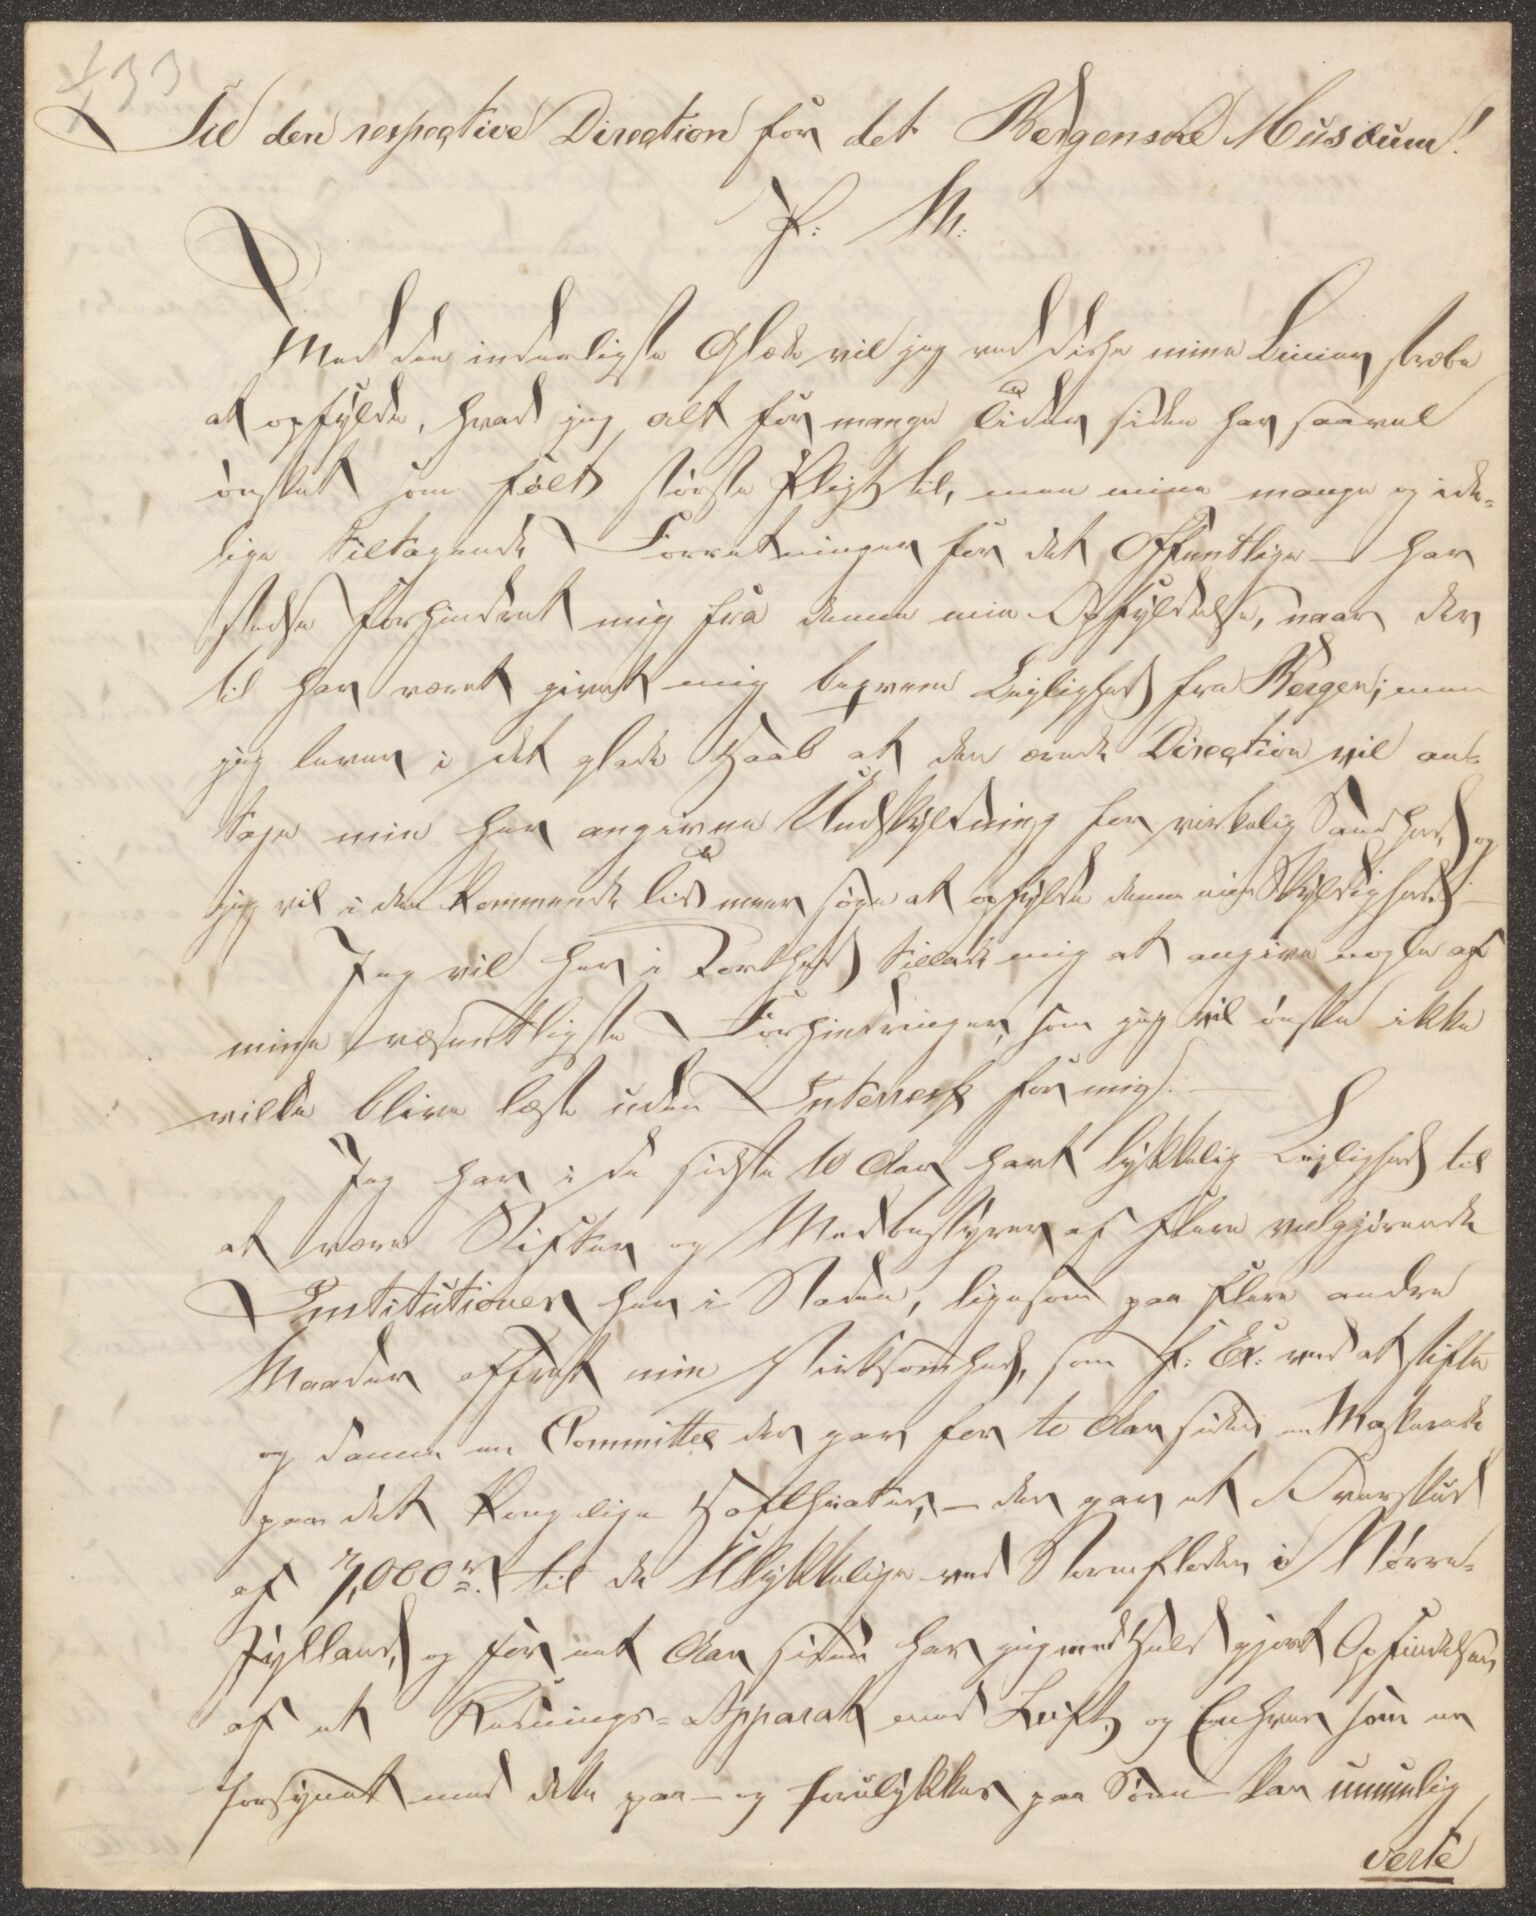 133
Til den respective Direction for det Bergenske Musæum!
P. M.
Med den inderligste Glæde vil jeg ved disse mine Linier stræbe
at opfylde, hvad jeg alt for mange Tider siden har saavel
ønsket som følt største Pligt til, men mine mange og ide-
lige tiltagende Forretninger for det Offentlige – har
stedse forhindret mig fra denne min Opfyldelse, naar der
til har været givet mig beqvem Leilighed fra Bergen; men
jeg lever i det glade Haab at den ærede Direction vil an-
tage min her angivne Undskyldning for virkelig Sandhed, og
jeg vil i den kommende Tid meer søge at opfylde denne min Skyldighed. –
Jeg vil her i Korthed tillade mig at angive nogle af
mine væsentligste Forhindringer, som jeg vil ønske ikke
vilde blive læst uden Interesse for mig. –
Jeg har i de sidste 10 Aar havt lykkelig Leilighed til
at være Stifter og Medbestyrer af flere velgjørende
Institutioner her i Staden, ligesom paa flere andre
Maader offret min Virksomhed, som f: Ex: ved at stifte
og danne en Committee der gav for 10 Aar siden en Maskerade
paa det Kongelige Hoftheater, – der gav et Overskud
af 7,000 til de Ulykkelige ved Stormfloden i Nørre-
Jylland, og for eet Aar siden har jeg med Held gjort Opfindelsen
af et Rednings-Apparat med Luft, og Enhver som er
forsynet med dette paa – og forulykkes paa Søen – kan umuelig
verte